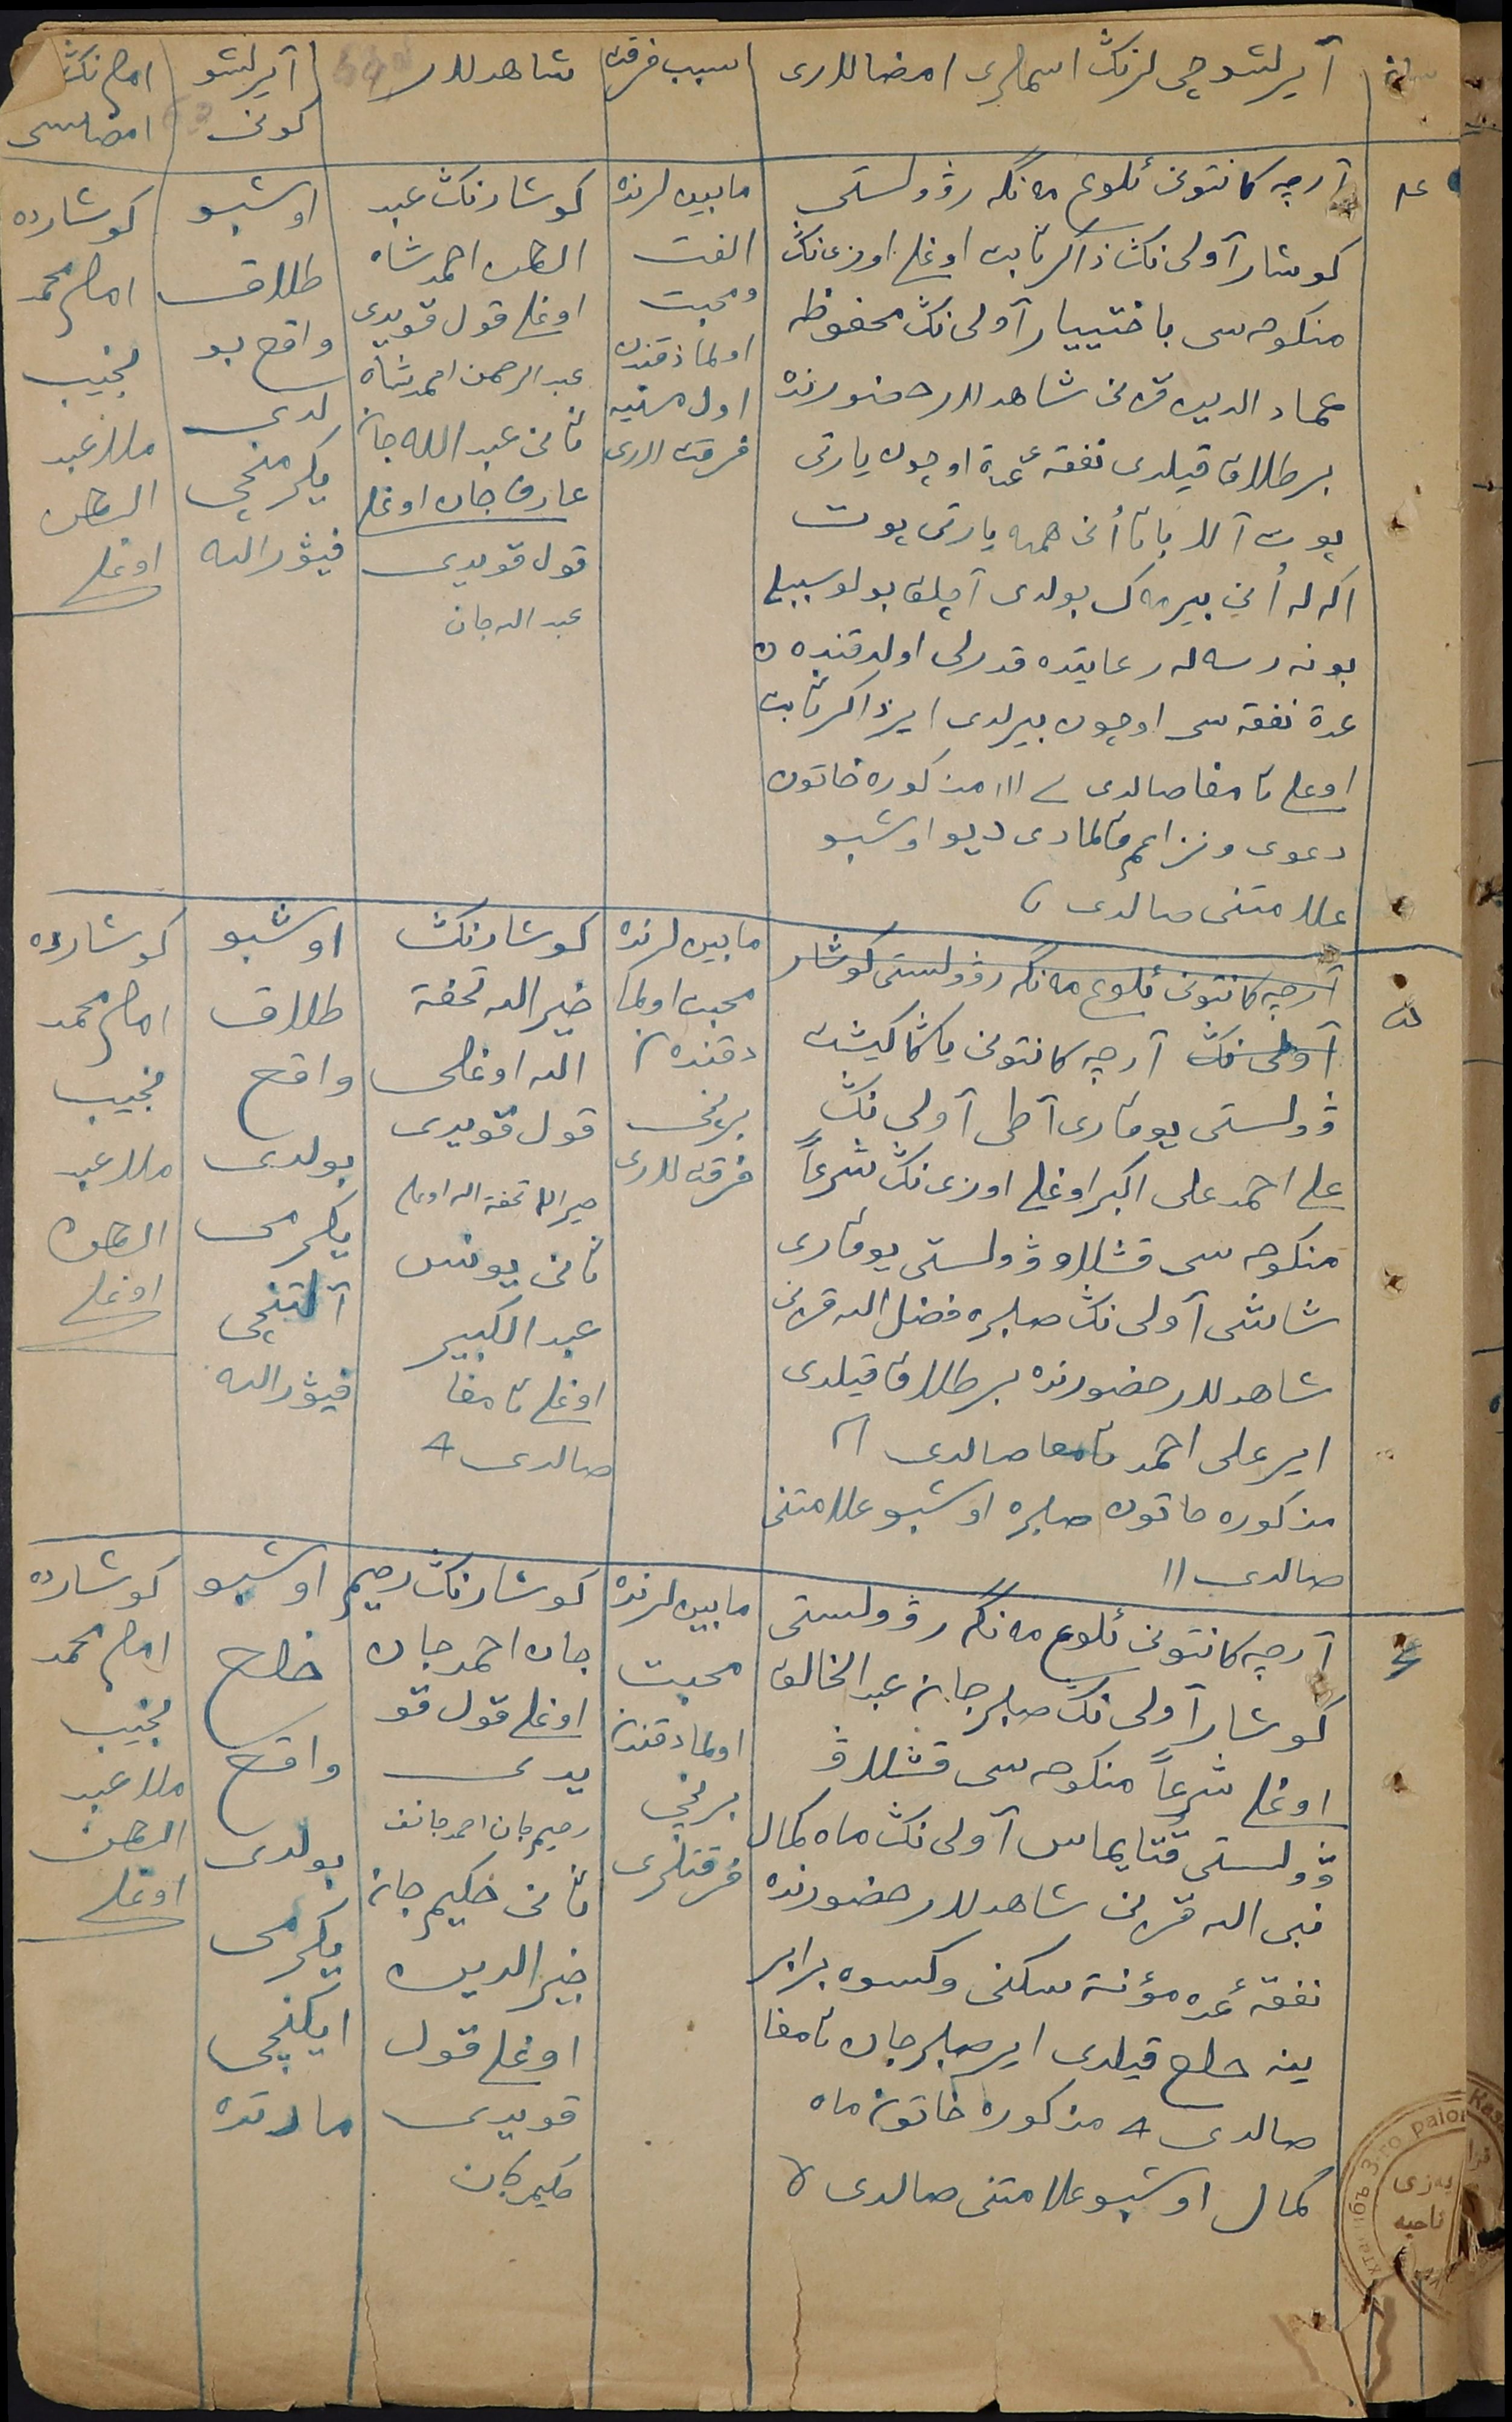 آیرلشوچی لرنڭ اسملری امضالاری
سبب فرقت
شاهدلار
آیرلشو
كونی
امام نڭ
امضاسی
آرچه كانتونی ئلوع مه نگه ر ۋولستی
كوشار آولی نڭ ذاكر ثابت اوغلی اوزی نڭ
منكوحه سی باختییار آولی نڭ محفوظه
عماد الدین قزی نی شاهدلار حضورنده
بر طلاق قیلدی نفقه عدة اوچون یارتی
پوت آلا باتا أنی همه یارتی پوت
بیرمه ك بولدی آچلق بولو سببلی
عدة نفقه سی اوچون بیرلدی ایر ذاكر ثابت
اوغلی تامغا صالدی مذكوره خاتون
دعوی ونزاعم قالمادی دیو اوشبو
علامتنی صالدی
مابین لرنده
الفت
ومحبت
اولماذقندن
اول مرتبه
فرقت لاری
كوشارنڭ عبد
الرحمن احمدشاه
اوغلی قول قویدی
عبد الرحمن احمدشاه
ثانی عبد الله جان
عارف جان اوغلی
قول قویدی
عبد الله جان
اوشبو
طلاق
واقع بو
لدی
یكرمنچی
فیۋرالده
كوشارده
امام محمد
نجیب
ملا عبد
الرحمن
اوغلی
آرچه كانتونی ئلوع مه نگه ر ۋولستی كوشار
آولی نڭ آرچه كانتونی یاڭا كیشت
ۋولستی یوقاری آطی آولی نڭ
علی احمد علی اكبر اوغلی اوزی نڭ شرعاً
منكوحه سی قشلاو ۋولستی یوقاری
شاشی آولی نڭ صابره فضل الله قزی نی
شاهدلار حضورنده بر طلاق قیلدی
ایر علی احمد تامغا صالدی
مذكوره خاتون صابره اوشبو علامتنی
صالدی
مابین لرنده
محبت اولما
دقندن
برنچی
فرقت لاری
كوشارنڭ
خیر الله تحفة
الله اوغلی
قول قویدی
خیر الله تحفة الله اوغلی
ثانی یونس
عبد الكبیر
اوغلی تامغا
صالدی
اوشبو
طلاق
واقع
بولدی
یكرمی
آلتنچی
فیۋرالده
كوشارده
امام محمد
نجیب
ملا عبد
الرحمن
اوغلی
آرچه كانتونی ئلوع مه نگه ر ۋولستی
كوشار آولی نڭ صابرجان عبد الخالق
اوغلی شرعاً منكوحه سی قشلاو
ۋولستی قتایماس آولی نڭ ماه كمال
نبی الله قزی نی شاهدلار حضورنده
نفقهٔ عده مؤنة سكنی وكسوه برابر
ینه خلع قیلدی ایر صابرجان تامغا
صالدی مذكوره خاتون ماه
كمال اوشبو علامتنی صالدی
مابین لرنده
محبت
اولمادقندن
برنچی
فرقتلری
كوشارنڭ رحیم
جان احمدجان
اوغلی قول قو
یدی
رحیم جان احمدجانف
ثانی حكیم جان
خیر الدین
اوغلی قول
قویدی
حكیم جان
اوشبو
خلع
واقع
بولدی
یكرمی
ایكنچی
مارتده
كوشارده
امام محمد
نجیب
ملا عبد
الرحمن
اوغلی
3-го район
ناحیه